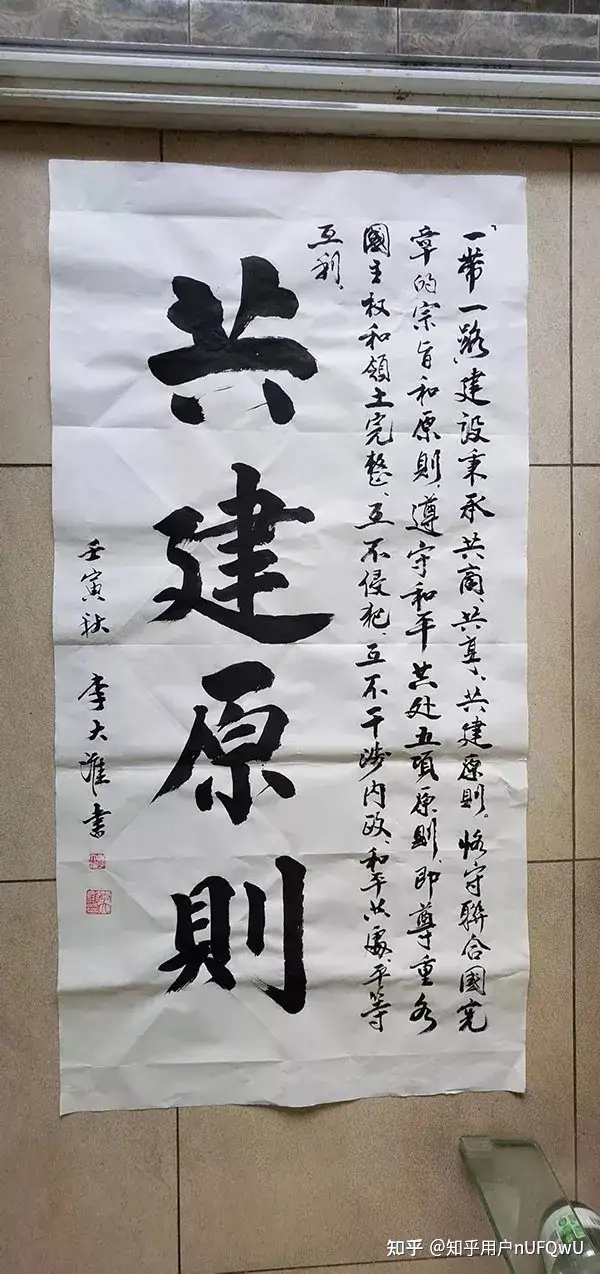 「一带一路」建设秉承共商、共享、共建原则。恪守联合國宪
章的宗旨和原则，遵守和平共处五項原則，即尊重各
國主权和領土完整、互不侵犯、互不干涉内政、和平共處、平等
互利。
共建原則
壬寅秋 李大淮書
知乎 @知乎用户nUFQwU